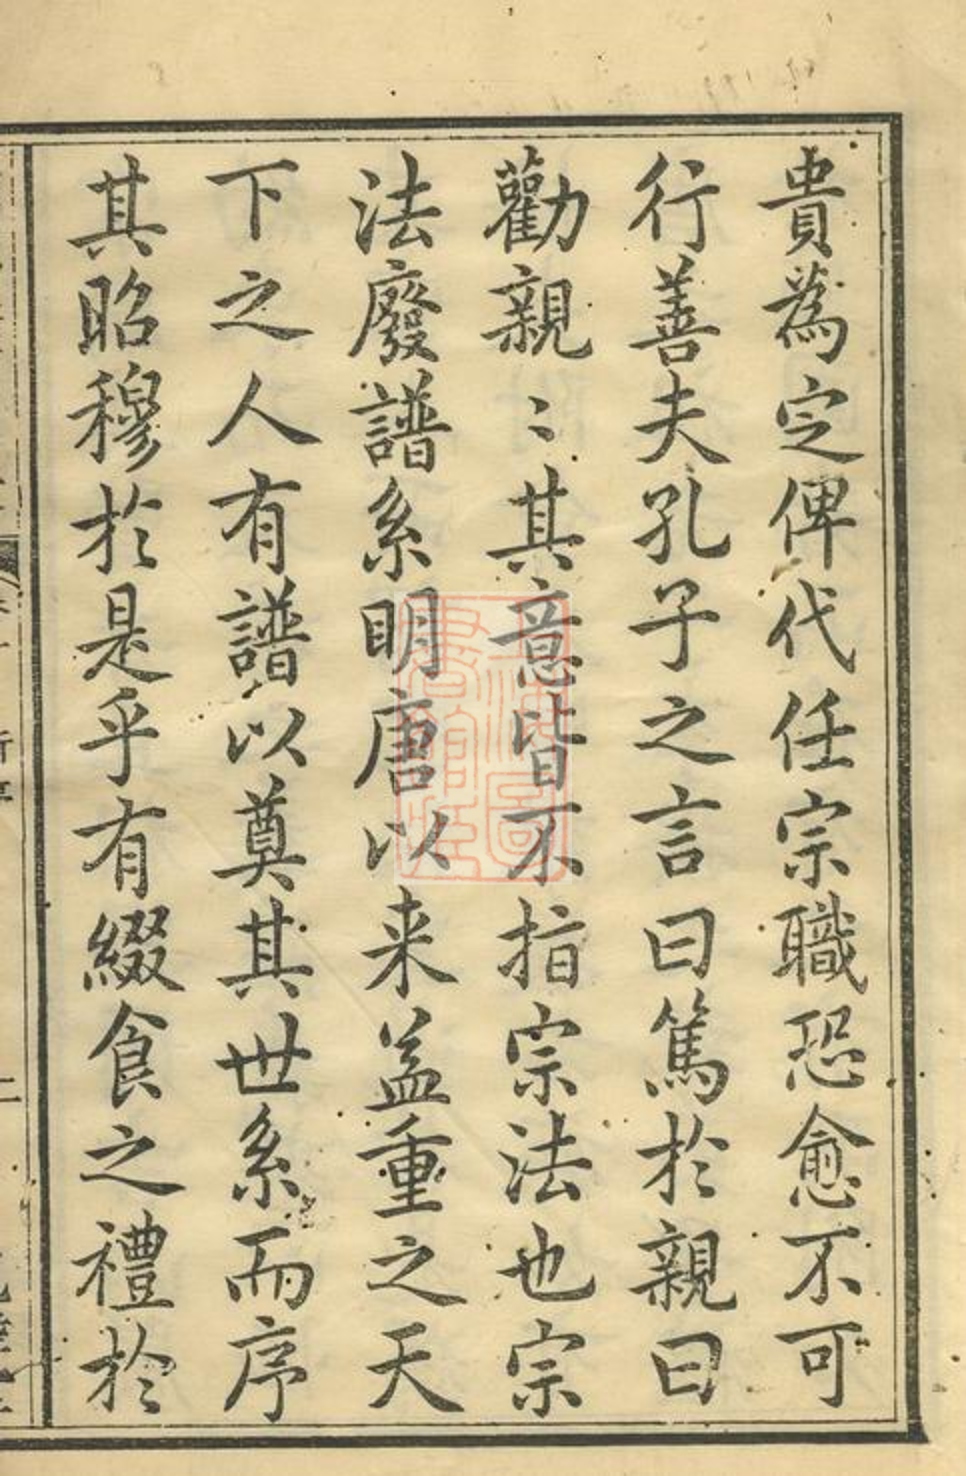 貴為定俾代任宗職恐愈不可
行善夫孔子之言曰篤於親曰
勸親〻其意皆不指宗法也宗
法廢譜系明唐以来盖重之天
下之人有譜以奠其世系而序
其昭穆於是乎有綴食之禮於